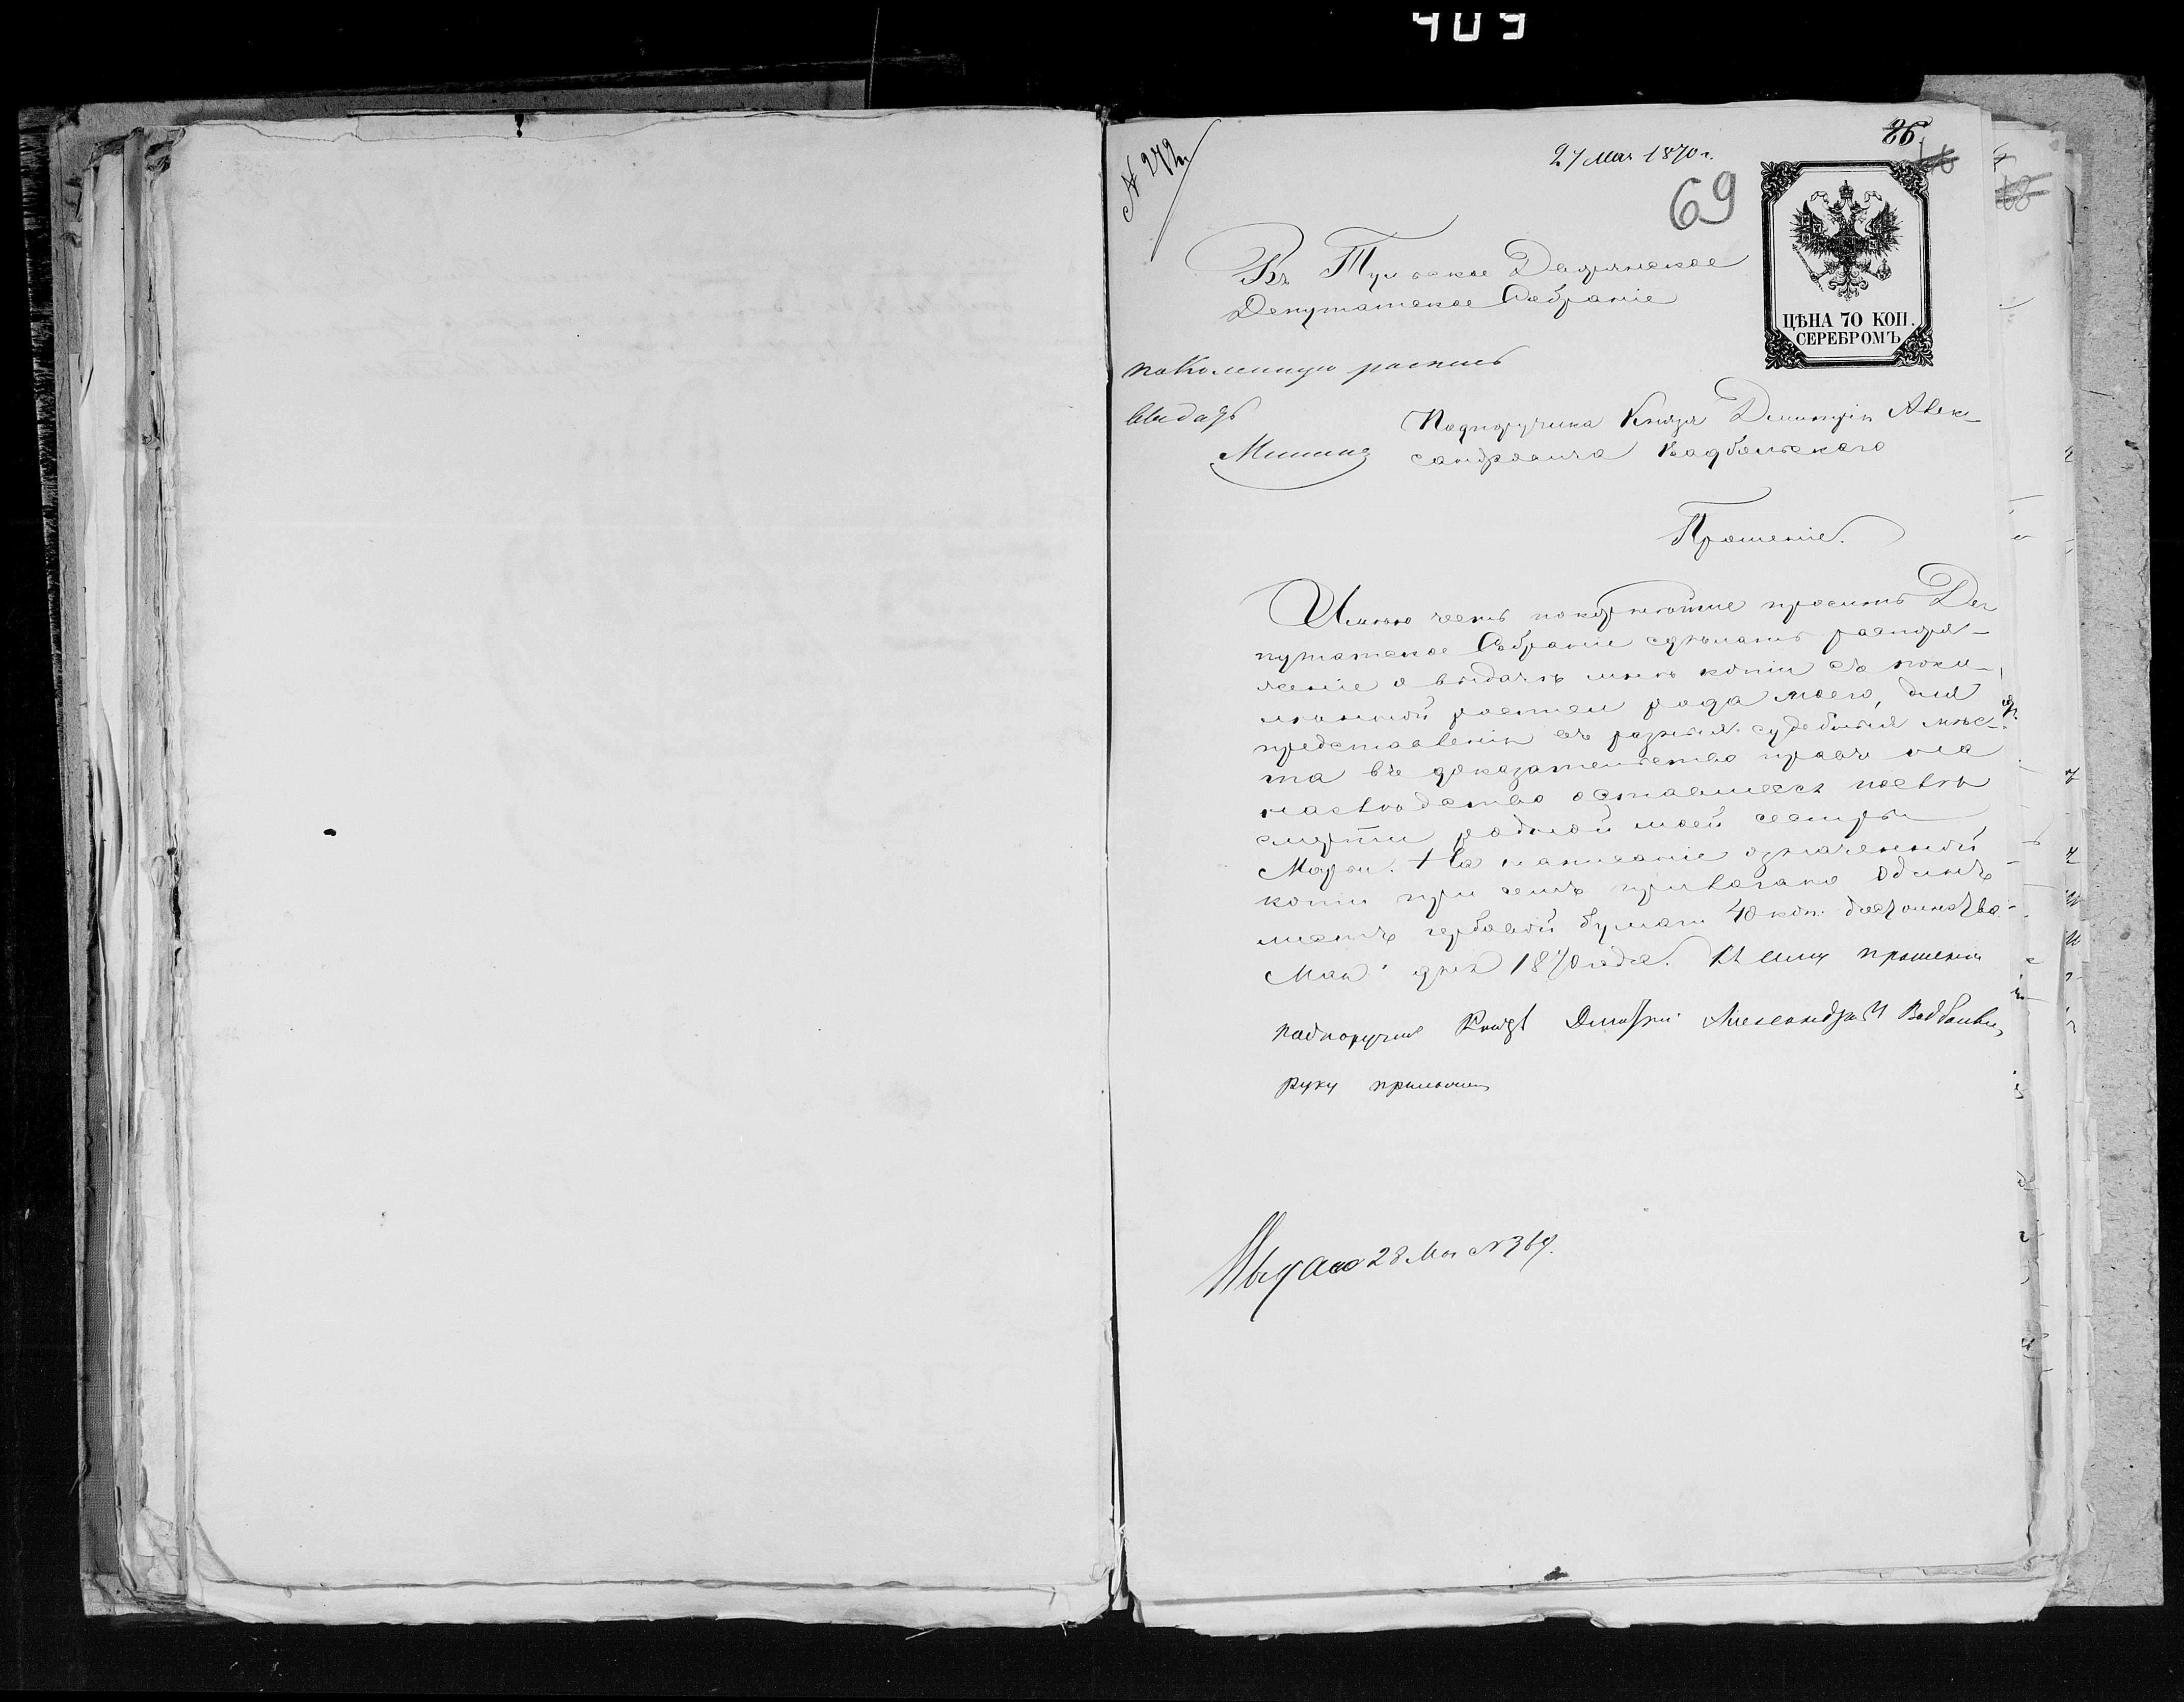 409
N 272
27 Мая 1870 г.
86.
69
68
ЦѢНА 70 КОП.
СЕРЕБРОМЪ
Въ Тульское Дворянское
Депутатское Собраніе
поколенную роспись
выдать
Мининъ
Подпоручика Князя Дмитрія Алек-
сандровича Вадбольскаго
Прошеніе.
Имѣю честь покорнѣйше просить Де-
путатское Собраніе сдѣлать распоря-
женіе о выдачѣ мнѣ копіи съ поко-
лѣнной росписи рода моего, для
представленія въ разныя судебныя мѣс-
та въ доказательство правъ на
наслѣдство оставшееся послѣ
смерти родной моей сестры
Марьи. На написаніе означенной
копіи при семъ прилагаю одинъ
листъ гербовой бумаги 40 коп. достоинства.
Мая дня 1870 года. Къ сему прошенію
подпоручикъ Князь Дмитрій Александровъ Вадбольскій
руку приложилъ
Выдано 28 Мая N 369.